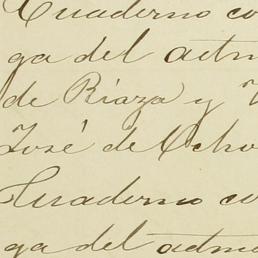 Cuaderno co
ga del adm
de Riaza y
José de Ocho
Cuaderno co
ga del admo